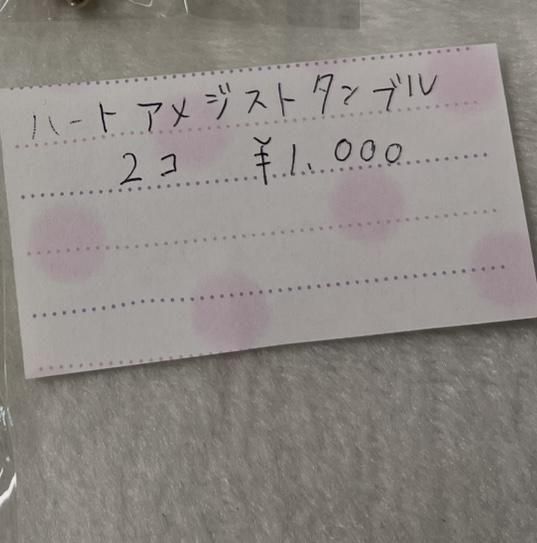 ハート アメジスト タンブル
2コ ¥1,000